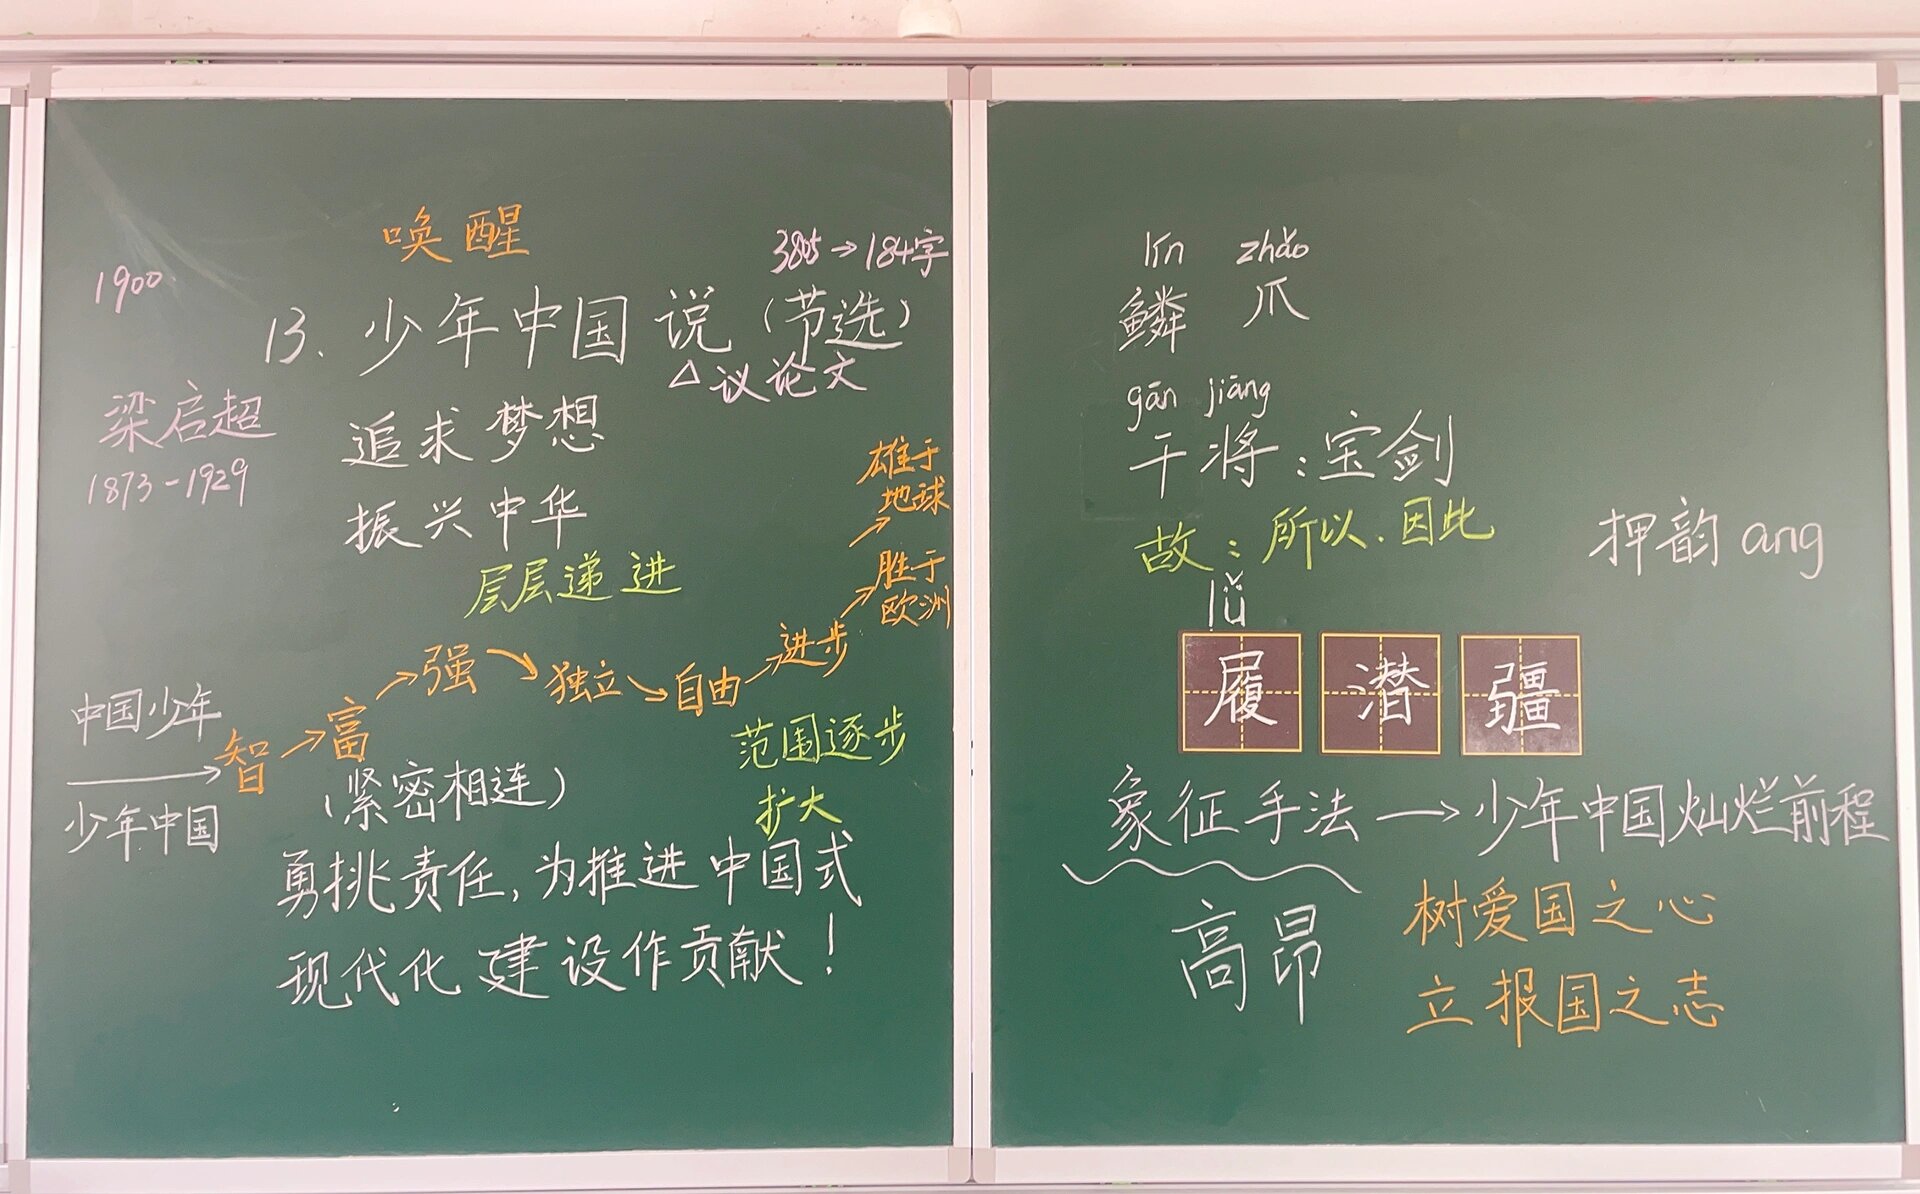 唤醒
1900
3805→184字
13.少年中国说(节选)
△议论文
梁启超
1873-1929
追求梦想
振兴中华
层层递进
雄于
地球
胜于
欧洲
中国少年
少年中国
智→富→强→独立→自由→进步
范围逐步
扩大
(紧密相连)
勇挑责任,为推进中国式
现代化建设作贡献!
lín zhǎo
鳞 爪
gān jiāng
干将:宝剑
故:所以.因此
押韵 ang
lǚ
履 潜 疆
象征手法→少年中国灿烂前程
高昂
树爱国之心
立报国之志